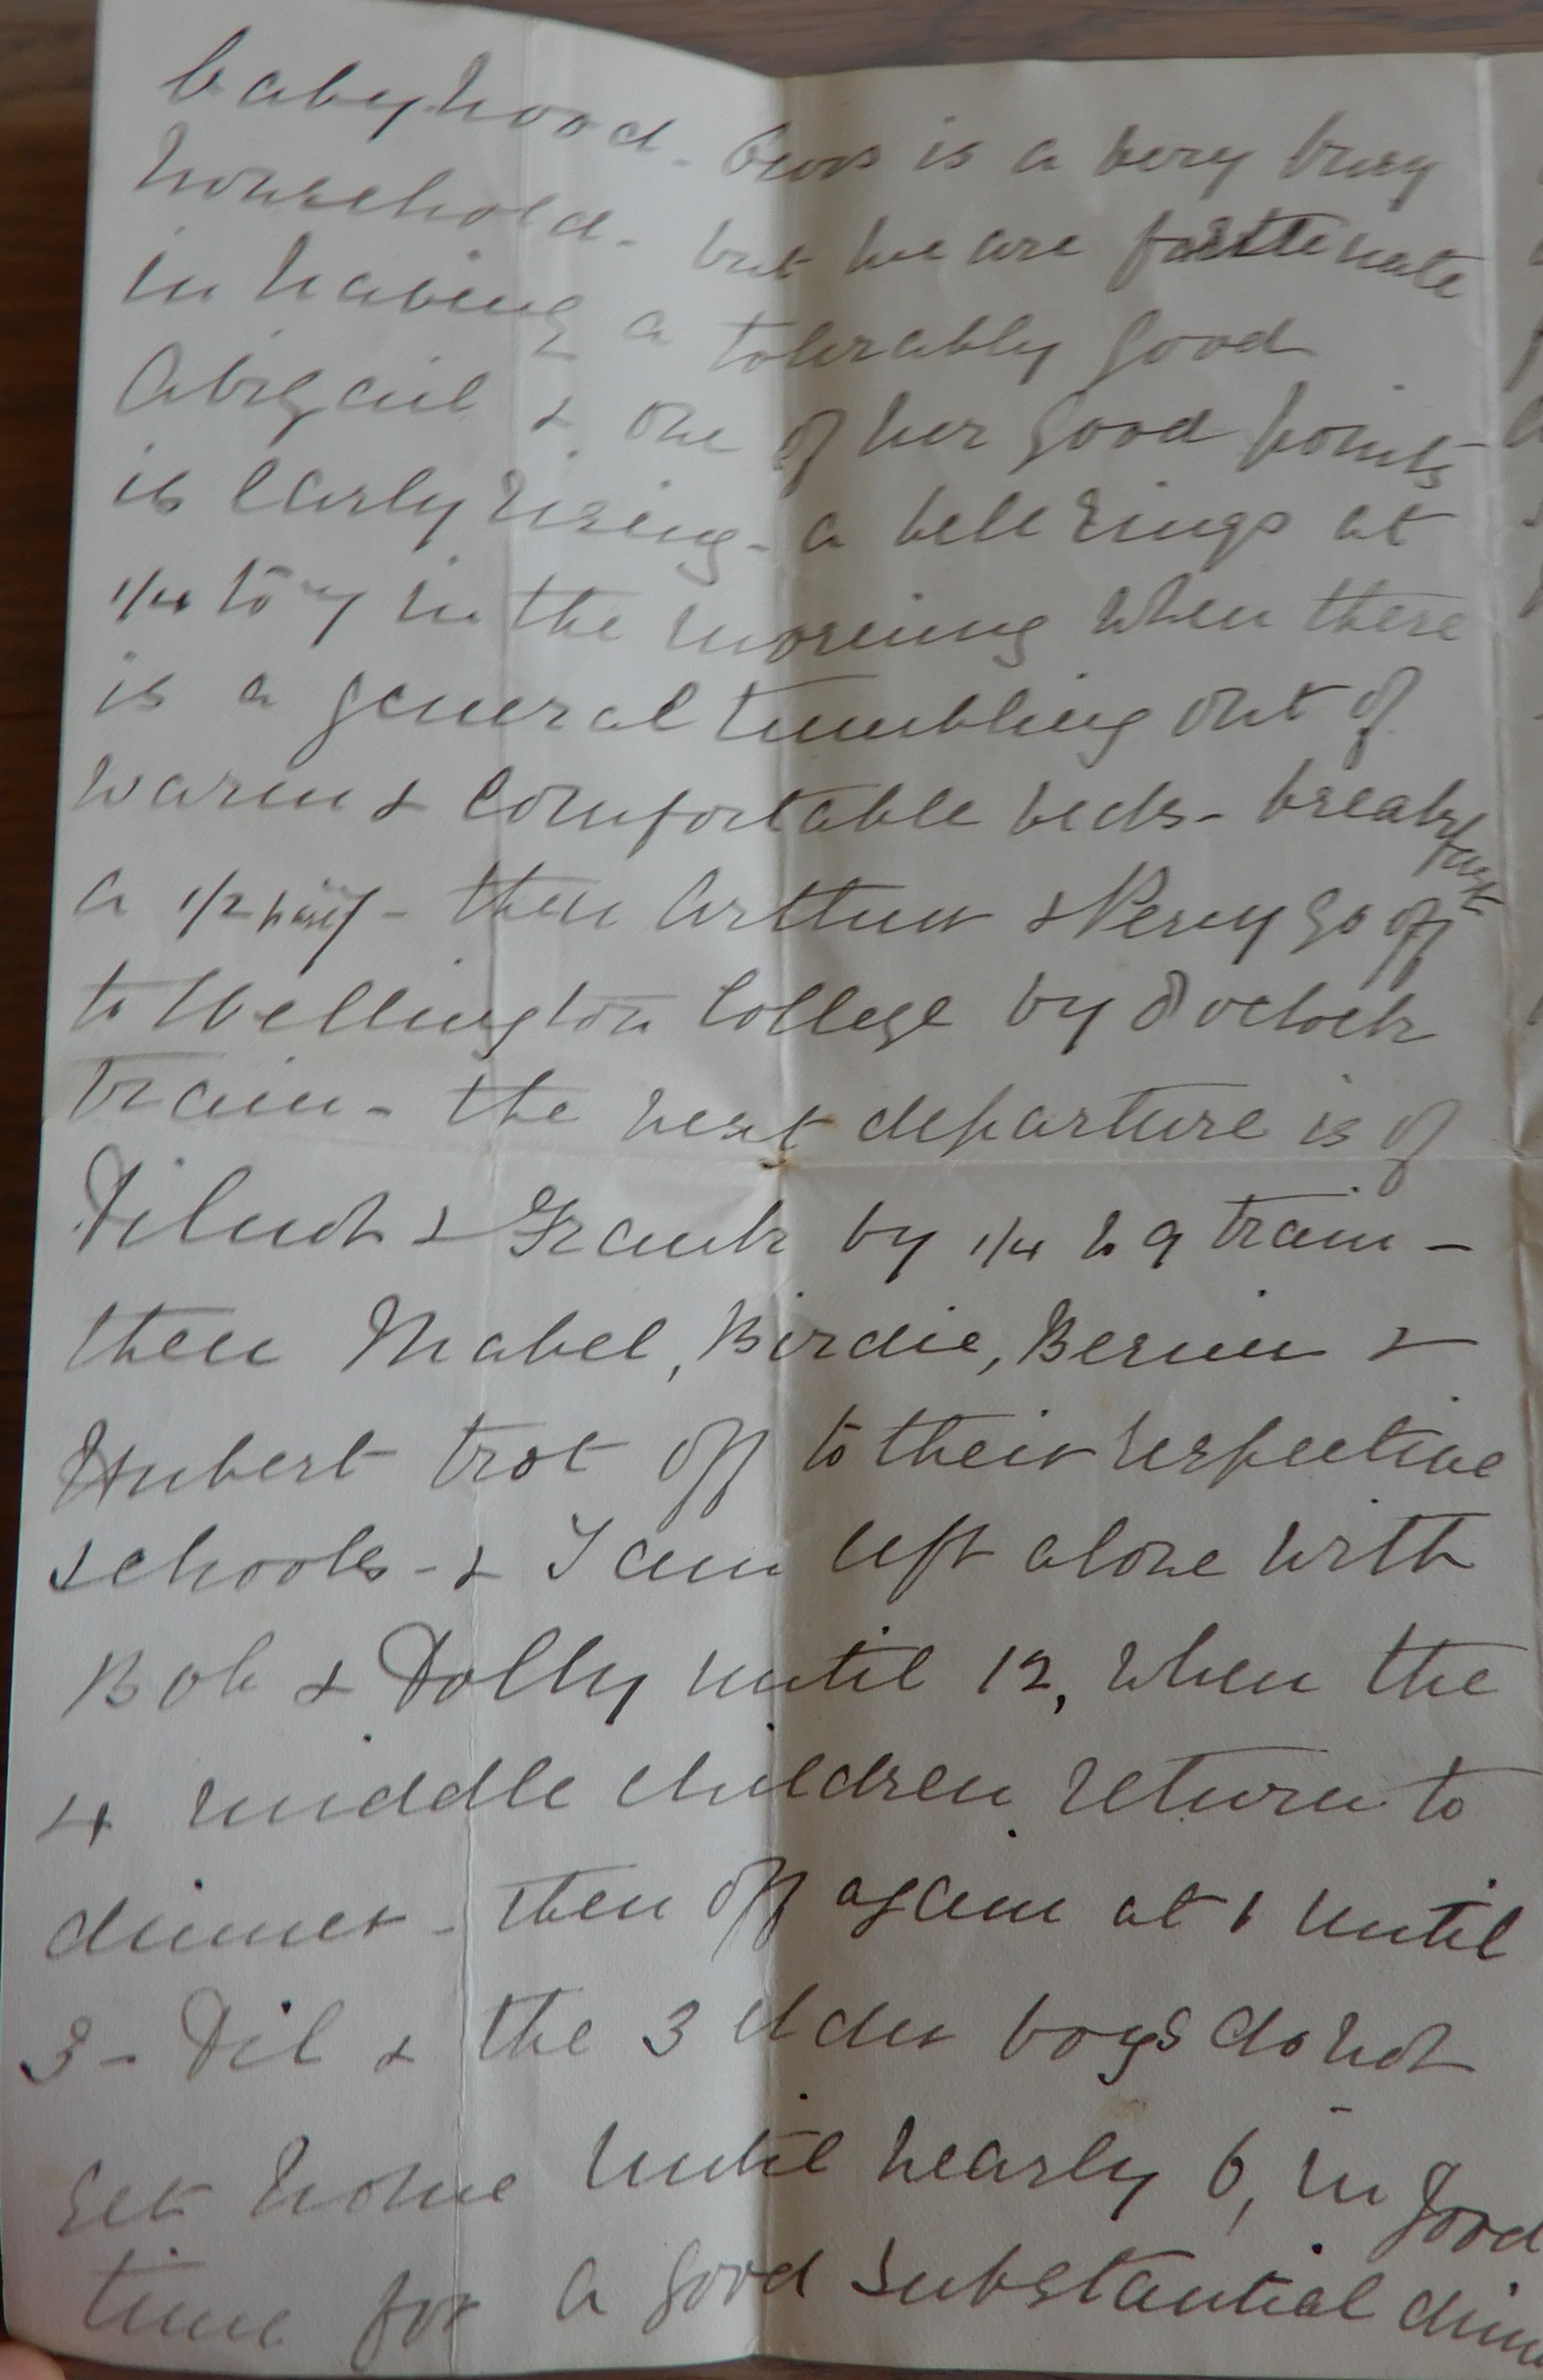 babyhood - ours is a very busy
household - but we are fortunate
in having a tolerably good
Abigail & one of her good points
is early rising - a bell rings at
1/4 to 7 in the morning when there
is a general tumbling out of
warm & comfortable beds - breakfast
a 1/2 past - then Arthur & Percy go off
to Wellington College by 8 oclock
train - the next departure is of
& Frank by 1/4 to 9 train -
then Mabel, Birdie, Bernie &
Hubert trot off to their respective
schools - & I am left alone with
Bob & Dolly until 12, when the
4 middle children return to
dinner - then off again at 1 until
3 - Dil & the 3 elder boys do not
get home until nearly 6, in good
time for a good substantial